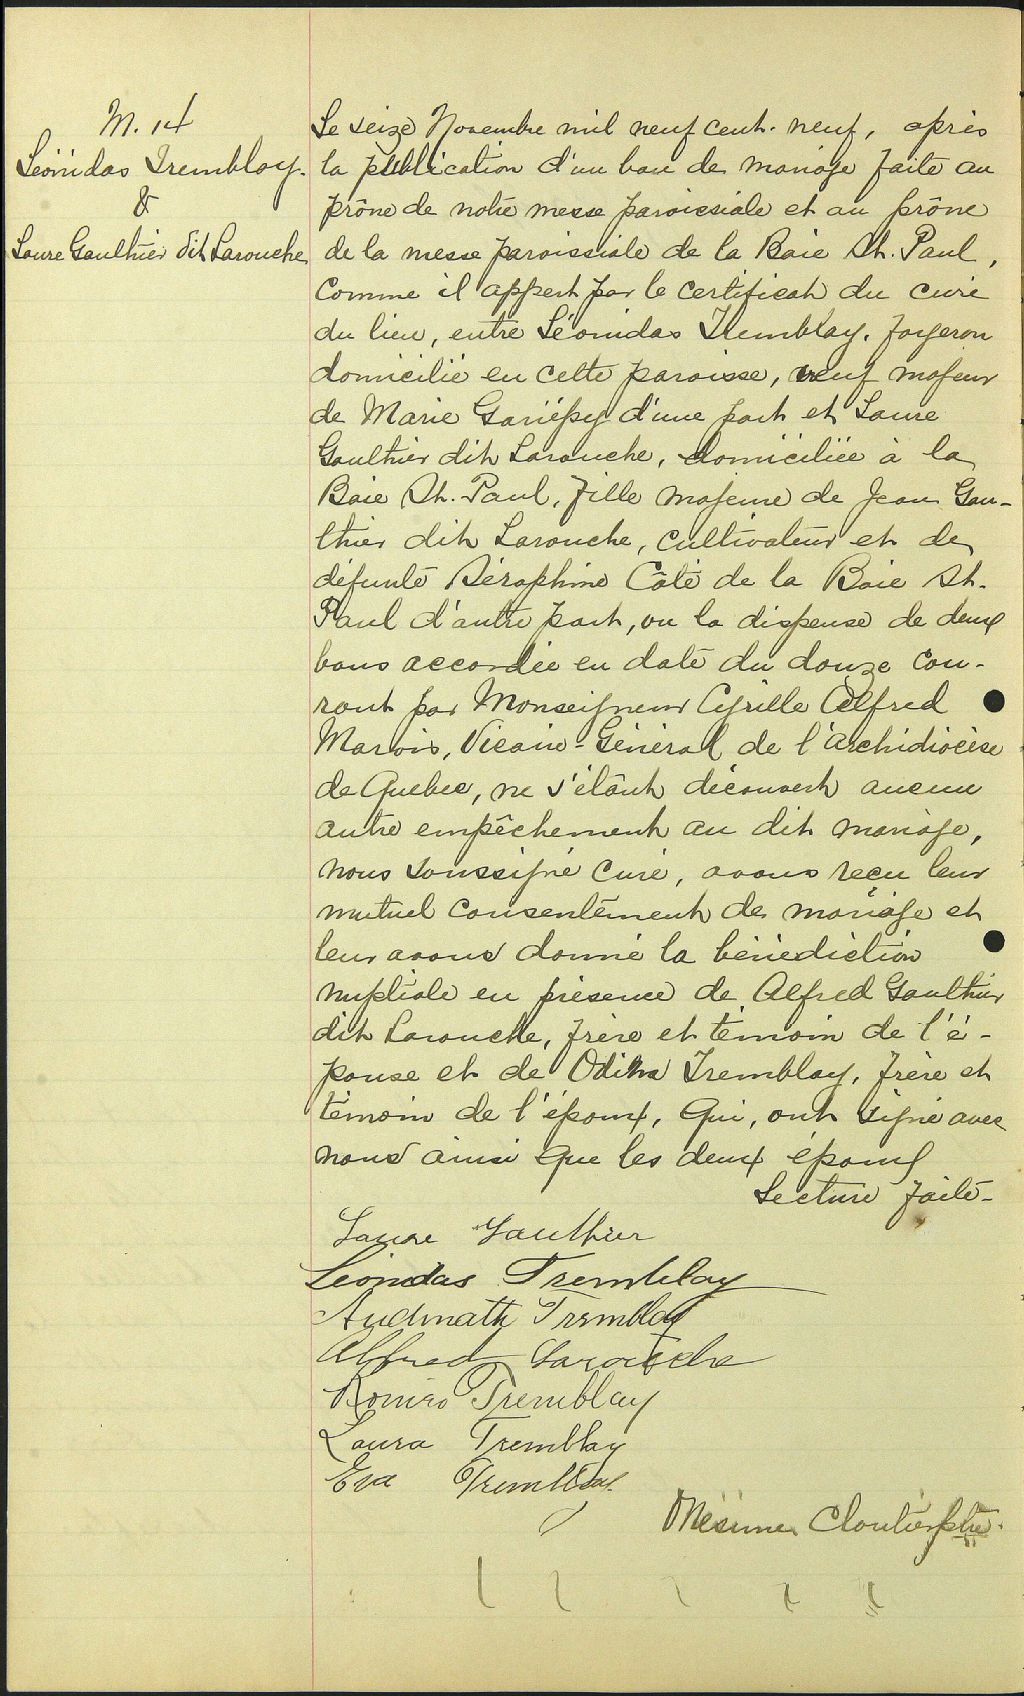 M. 14
Léonidas Tremblay.
&
Laure Gaulthier dit Larouche
Le seize Novembre mil neuf cent. neuf, après
la publication d'un ban de mariage faite au
prône de notre messe paroissiale et au prône
de la messe paroissiale de la Baie St. Paul,
comme il appert par le certificat du curé
du lieu, entre Léonidas Tremblay, forgeron
domicilié en cette paroisse, veuf majeur
de Marie Gariépy d'une part et Laure
Gaulthier dit Larouche, domiciliée à la
Baie St. Paul, fille majeure de Jean Gau-
lthier dit Larouche, cultivateur et de
défunte Séraphine Côté de la Baie St.
Paul d'autre part, vu la dispense de deux
bans accordée en date du douze cou-
rant par Monseigneur Cyrille Alfred
Marois, Vicaire-Général de l'Archidiocèse
de Québec, ne s'étant découvert aucun
autre empêchement au dit mariage,
nous soussigné curé, avons reçu leur
mutuel consentement de mariage et
leur avons donné la bénédiction
nuptiale en présence de Alfred Gaulthier
dit Larouche, frère et témoin de l'é-
pouse et de Tremblay, frère et
témoin de l'époux, qui, ont signé avec
nous ainsi que les deux époux
Lecture faite-
Laure Gauthier
Léonidas Tremblay
Tremblay
Alfred Larouche
Roméo Tremblay
Laura Tremblay
Eva Tremblay
Onésime Cloutier ptre.